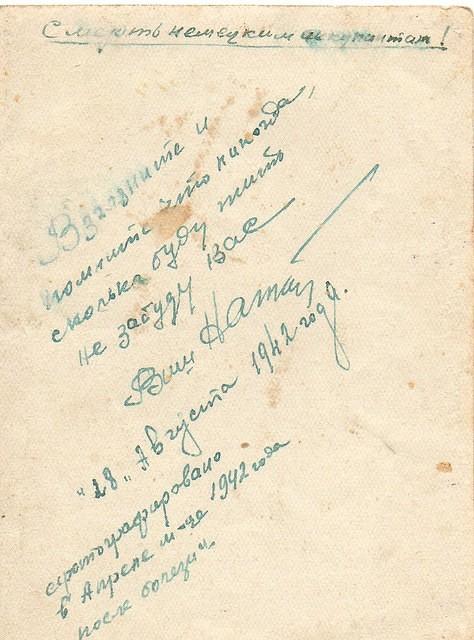 Смерть немецким оккупантам!
Взгляните и
помните что никогда,
сколько буду жить
не забуду Вас
"28" Августа 1942 года.
сфотографировано
в Апреле м-це 1942 года
после болезни